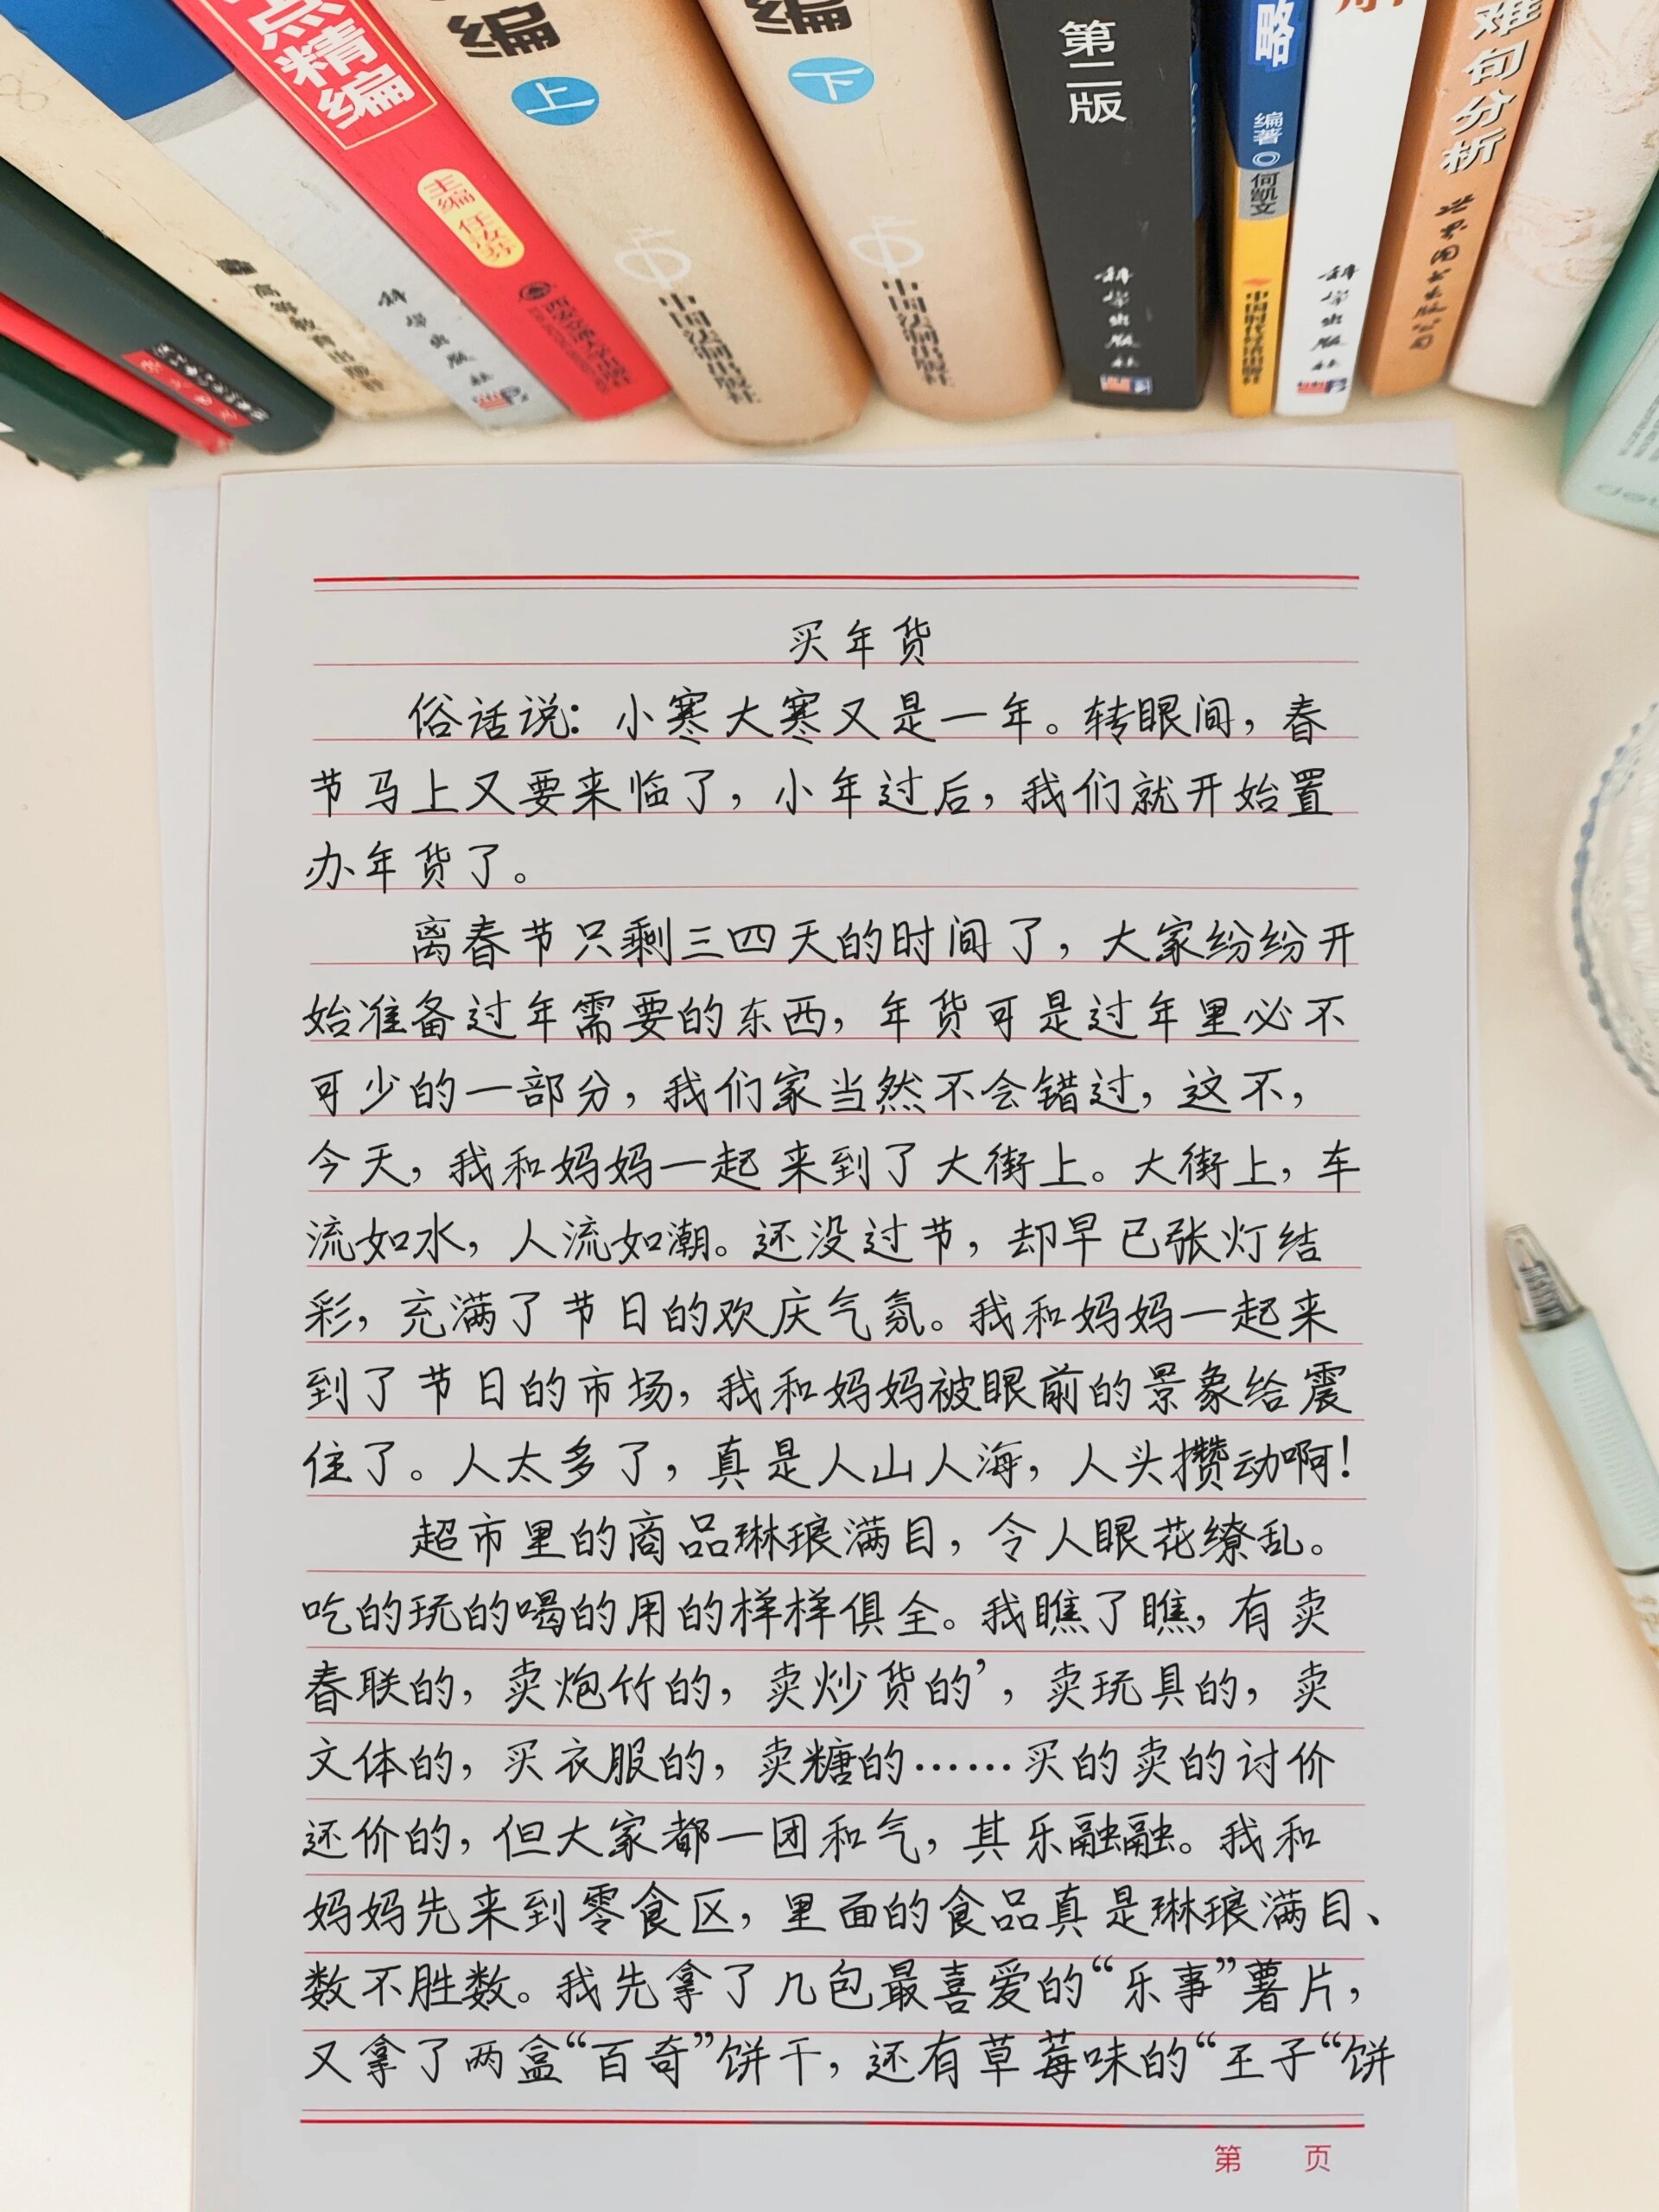 点精编
主编 任汝芬
编
上
中国法制出版社
编
下
中国法制出版社
第二版
科学出版社
略
编著
何凯文
中国时代经济出版社
科学出版社
难句分析
高等教育出版社
科学出版社
买年货
俗话说：小寒大寒又是一年。转眼间，春
节马上又要来临了，小年过后，我们就开始置
办年货了。
离春节只剩三四天的时间了，大家纷纷开
始准备过年需要的东西，年货可是过年里必不
可少的一部分，我们家当然不会错过，这不，
今天，我和妈妈一起来到了大街上。大街上，车
流如水，人流如潮。还没过节，却早已张灯结
彩，充满了节日的欢庆气氛。我和妈妈一起来
到了节日的市场，我和妈妈被眼前的景象给震
住了。人太多了，真是人山人海，人头攒动啊！
超市里的商品琳琅满目，令人眼花缭乱。
吃的玩的喝的用的样样俱全。我瞧了瞧，有卖
春联的，卖炮竹的，卖炒货的’，卖玩具的，卖
文体的，买衣服的，卖糖的……买的卖的讨价
还价的，但大家都一团和气，其乐融融。我和
妈妈先来到零食区，里面的食品真是琳琅满目、
数不胜数。我先拿了几包最喜爱的“乐事”薯片，
又拿了两盒“百奇”饼干，还有草莓味的“王子“饼
第 页